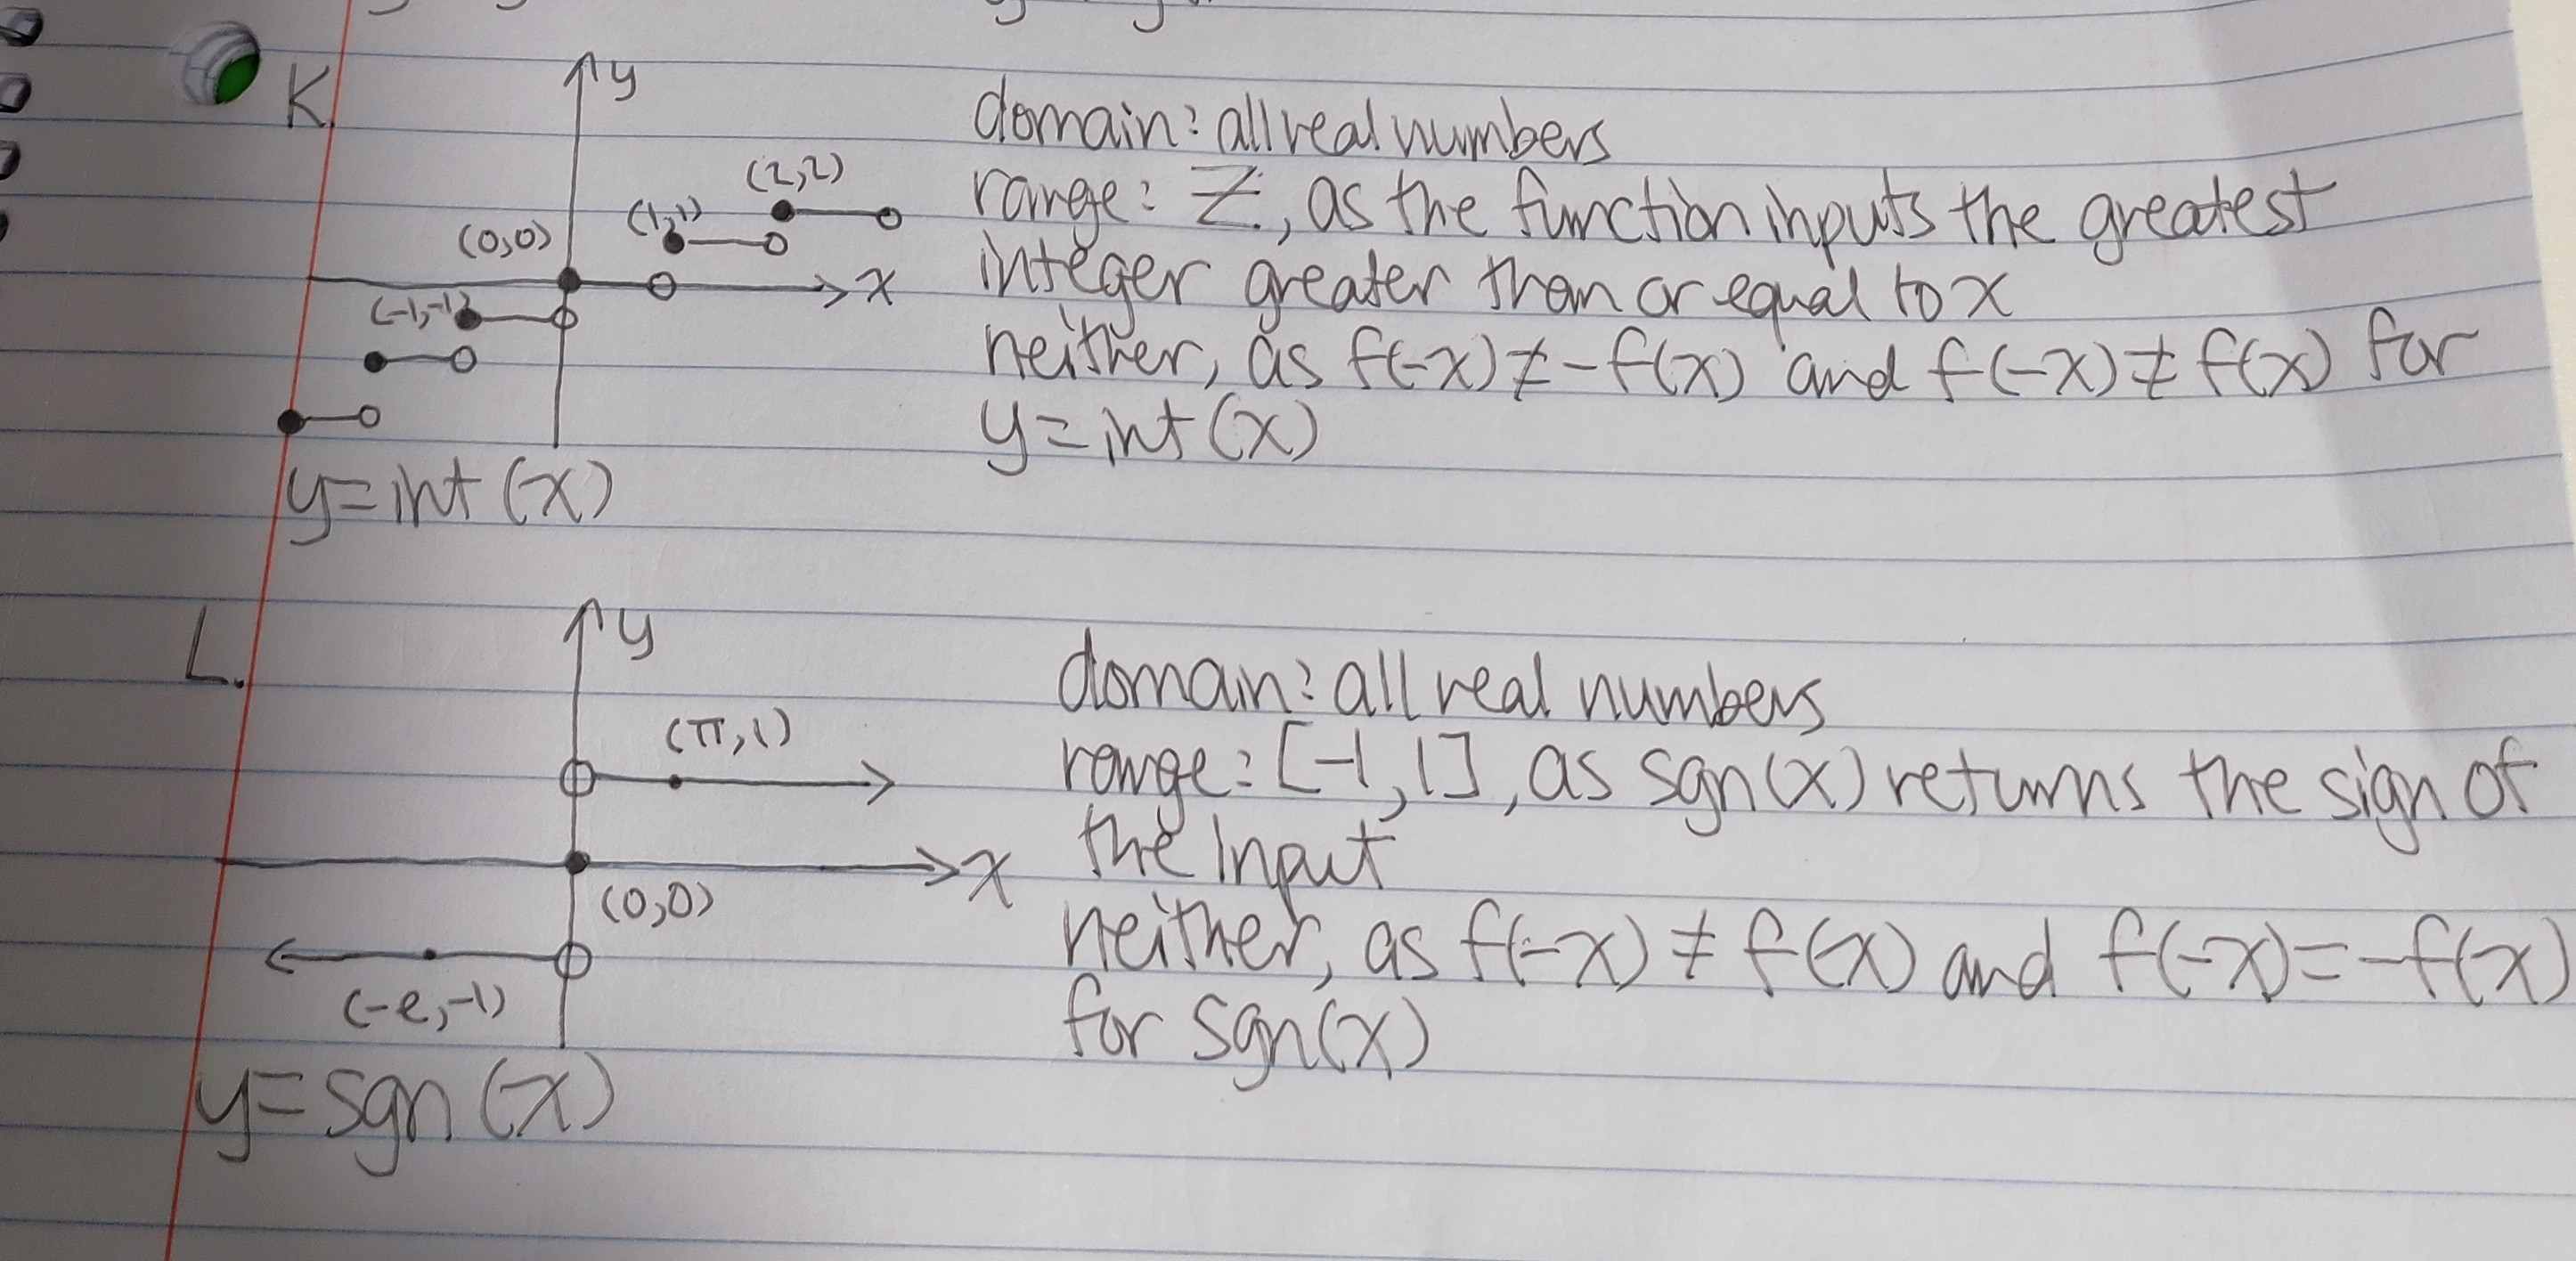 K.
y
(2,2)
(1,1)
(0,0)
x
(-1,-1)
y=int(x)
domain: all real numbers
range: Z, as the function inputs the greatest
integer greater than or equal to x
neither, as f(-x)≠-f(x) and f(-x)≠f(x) for
y=int(x)
L.
y
(π,1)
x
(0,0)
(-e,-1)
y=sgn(x)
domain: all real numbers
range: [-1,1], as sgn(x) returns the sign of
the input
neither, as f(-x)≠f(x) and f(-x)=-f(x)
for sgn(x)